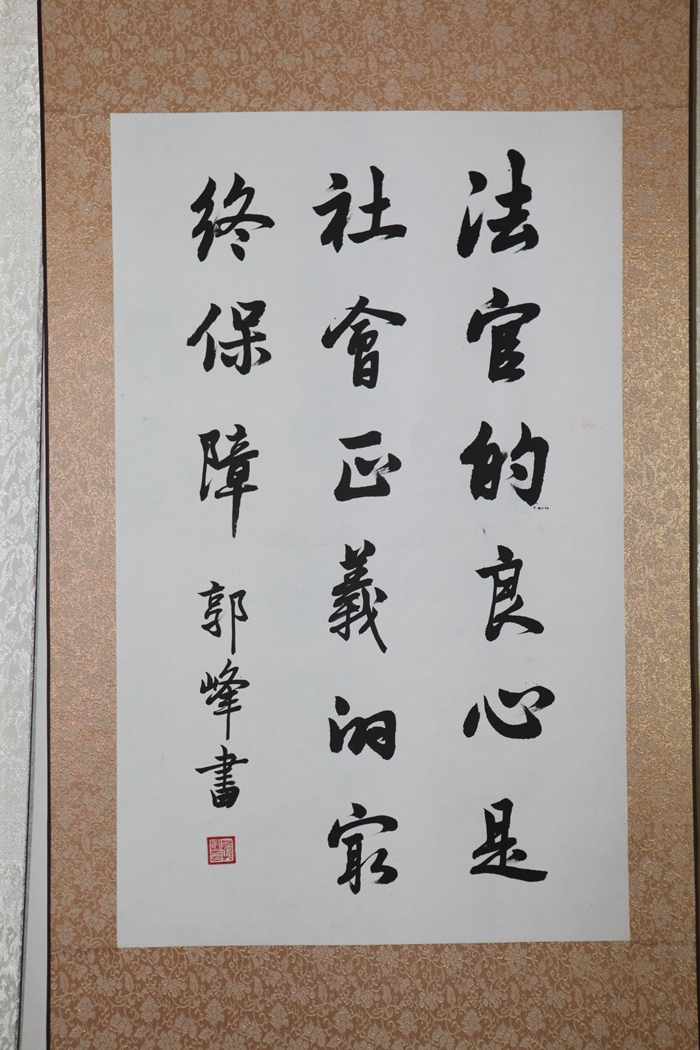 法官的良心是
社會正義的㝡
终保障 郭峰書